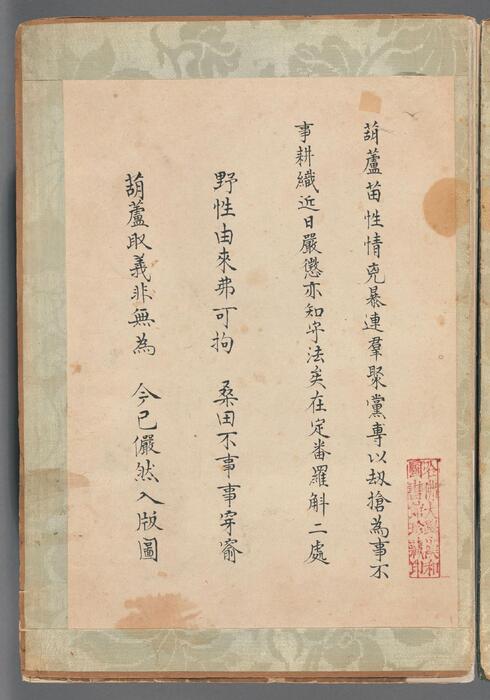 葫蘆苗性情兇暴連羣聚黨專以刼搶為事不
事耕織近日嚴懲亦知守法矣在定番羅斛二處
野性由來弗可拘　桑田不事事穿窬
葫蘆取義非無為　今已儼然入版圖